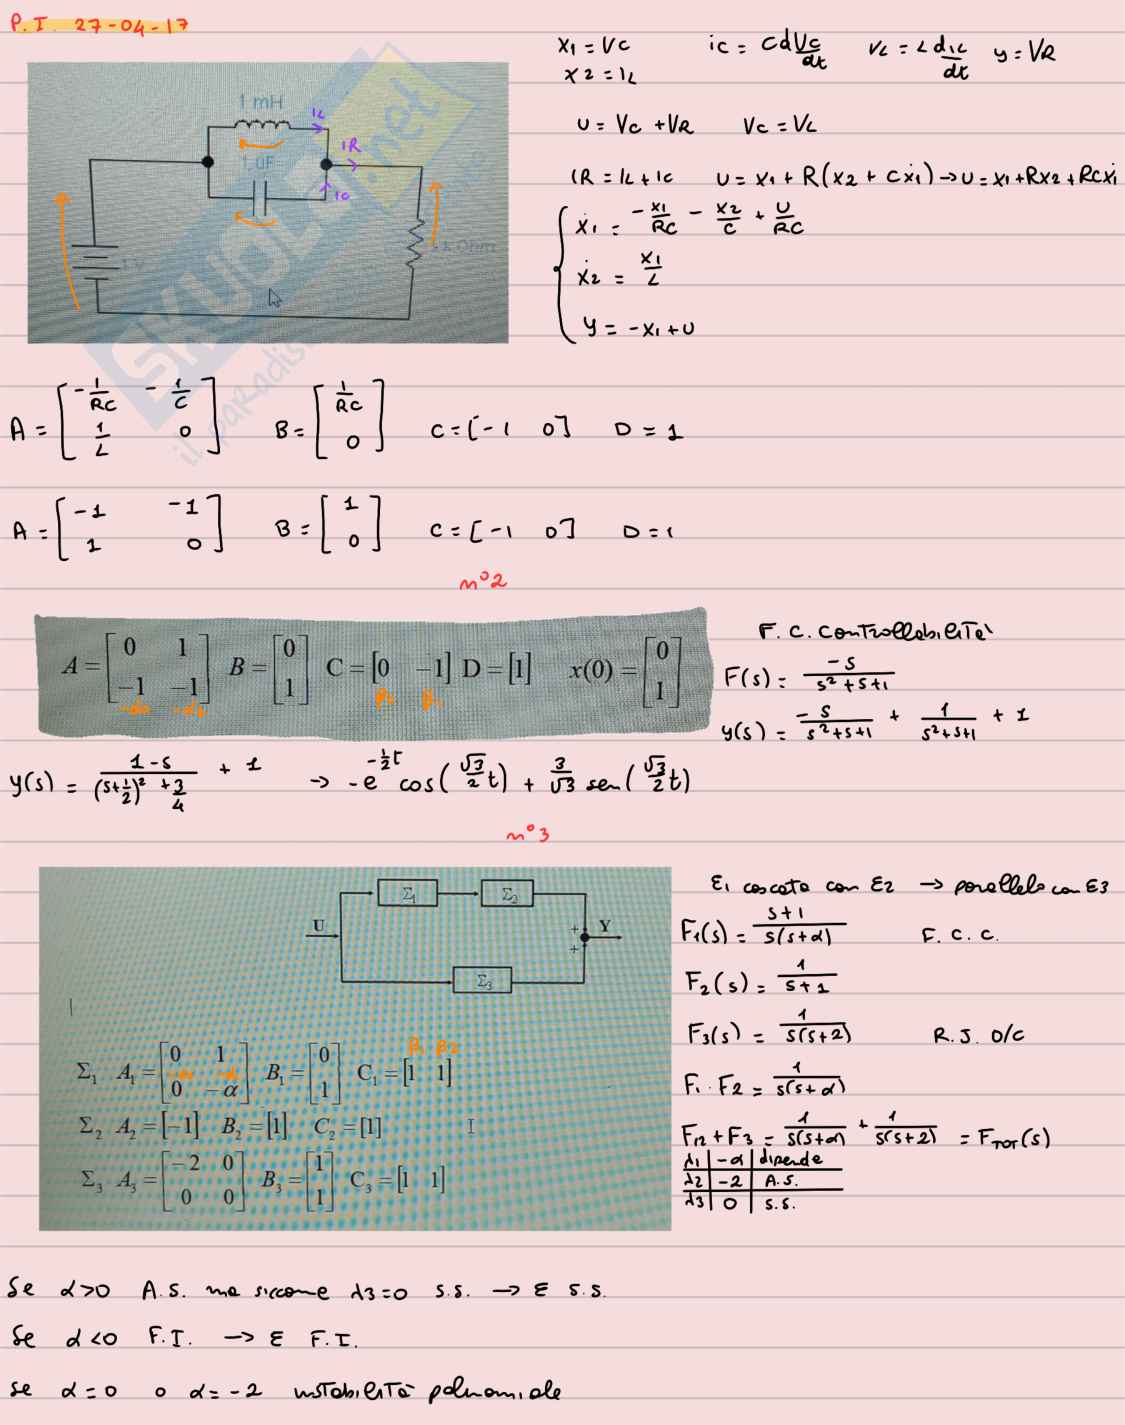 P.I. 27-04-17
x1 = Vc
x2 = iL
ic = C dVc/dt
VL = L diL/dt
y = VR
1 mH
iL
iR
ic
U = Vc + VR Vc = VL
iR = iL + ic U = x1 + R(x2 + Cẋ1) → U = x1 + Rx2 + RCẋ1
ẋ1 = -x1/RC - x2/C + U/RC
ẋ2 = x1/L
y = -x1 + U
SKUOLA.net
il paradis
A = [-1/RC -1/C; 1/L 0] B = [1/RC; 0] C = [-1 0] D = 1
A = [-1 -1; 1 0] B = [1; 0] C = [-1 0] D = 1
n°2
A = [0 1; -1 -1] B = [0; 1] C = [0 -1] D = [1] x(0) = [0; 1]
F.C. Controllabilità
F(s) = -s/(s²+s+1)
y(s) = -s/(s²+s+1) + 1/(s²+s+1) + 1
y(s) = (1-s)/((s+1/2)² + 3/4) + 1 → -e^(-1/2 t) cos(√3/2 t) + 3/√3 sen(√3/2 t)
n°3
U Σ1 Σ2 + Y
+
Σ3
Σ1 A1 = [0 1; 0 -α] B1 = [0; 1] C1 = [1 1]
Σ2 A2 = [-1] B2 = [1] C2 = [1]
Σ3 A3 = [-2 0; 0 0] B3 = [1; 1] C3 = [1 1]
Σ1 cascata con Σ2 → parallelo con Σ3
F1(s) = (s+1)/(s(s+α)) F.C.C.
F2(s) = 1/(s+1)
F3(s) = 1/(s(s+2)) R.J. O/C
F1 · F2 = 1/(s(s+α))
F12 + F3 = 1/(s(s+α)) + 1/(s(s+2)) = FTOT(s)
λ1 | -α | dipende
λ2 | -2 | A.S.
λ3 | 0 | S.S.
Se α>0 A.S. ma siccome λ3=0 S.S. → Σ S.S.
Se α<0 F.I. → Σ F.I.
se α=0 o α=-2 instabilità polinomiale